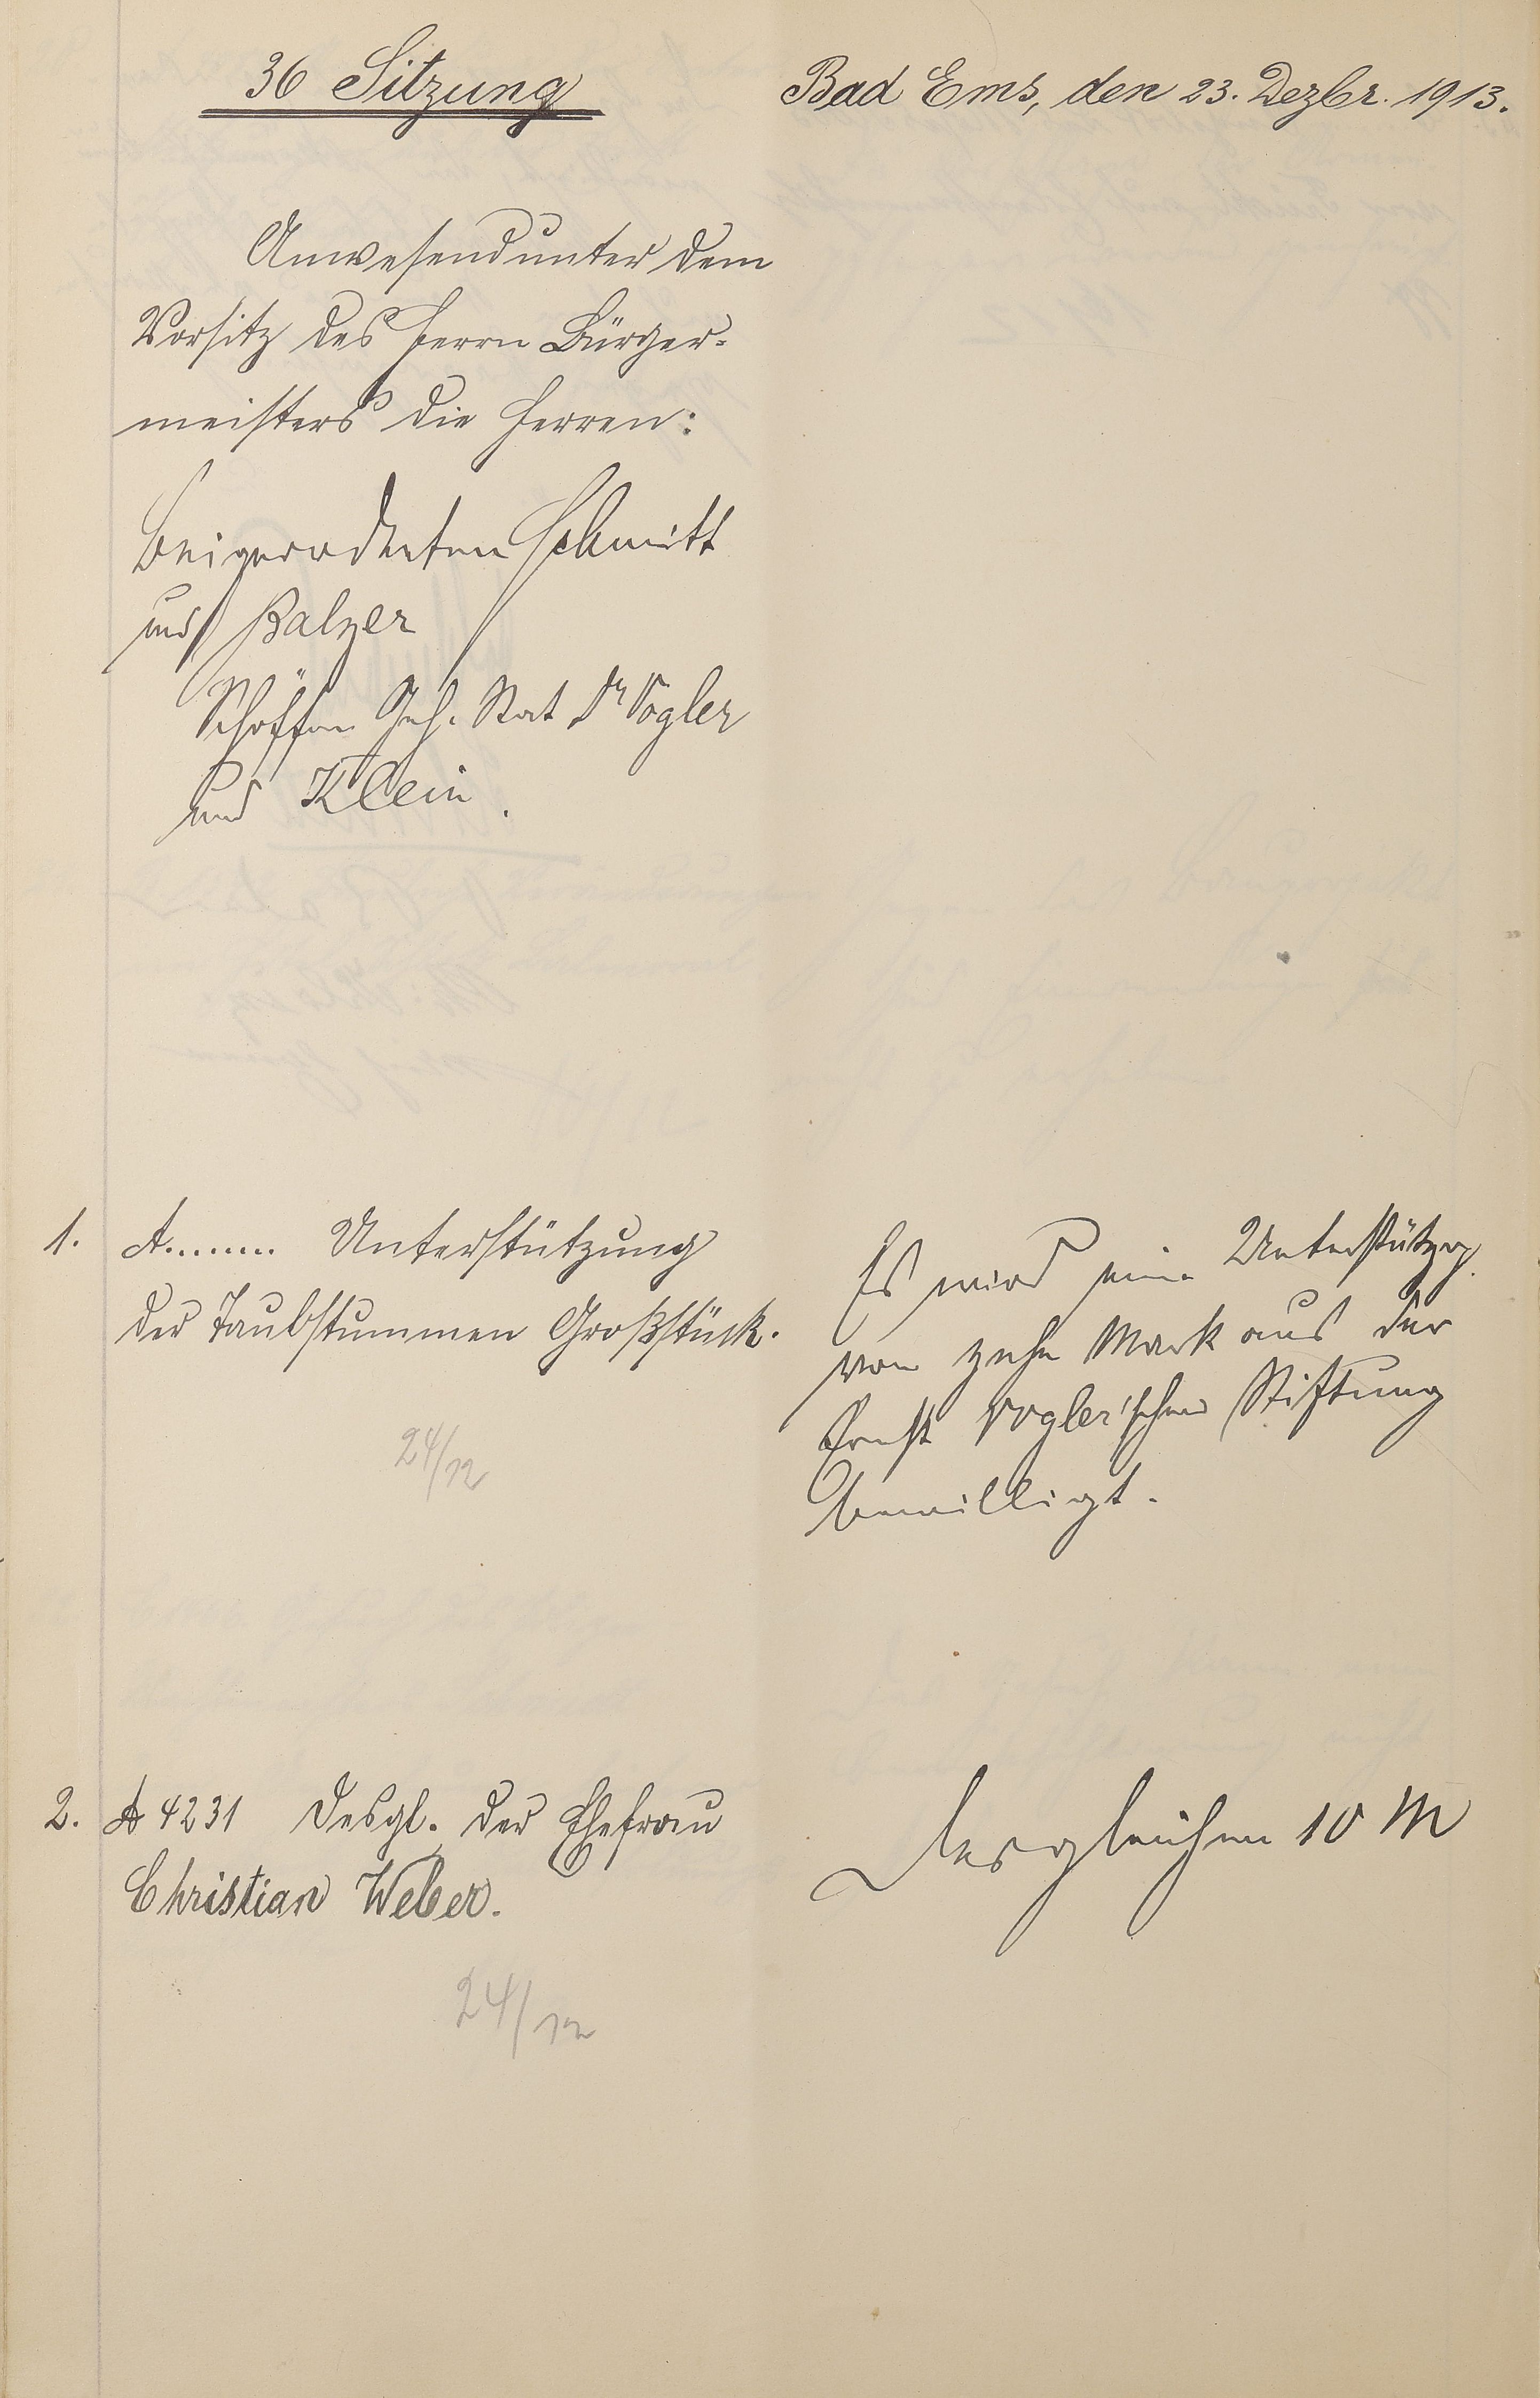 36 Sitzung
Bad Ems, den 23. Dezbr. 1913.
Anwesend unter dem
Vorsitz des Herrn Bürger-
meisters die Herren:
Beigeordneten Schmitt
und Balzer
Schöffen Geh. Rat Dr Vogler
und Klein.
1. A....... Unterstützung
der Taubstummen Großstück.
24/12
Es wird eine Unterstützg.
von zehn Mark aus der
Ernst Vogler'schen Stiftung
bewilligt.
2. A 4231 Desgl. der Ehefrau
Christian Weber.
24/12
Desgleichen 10 M